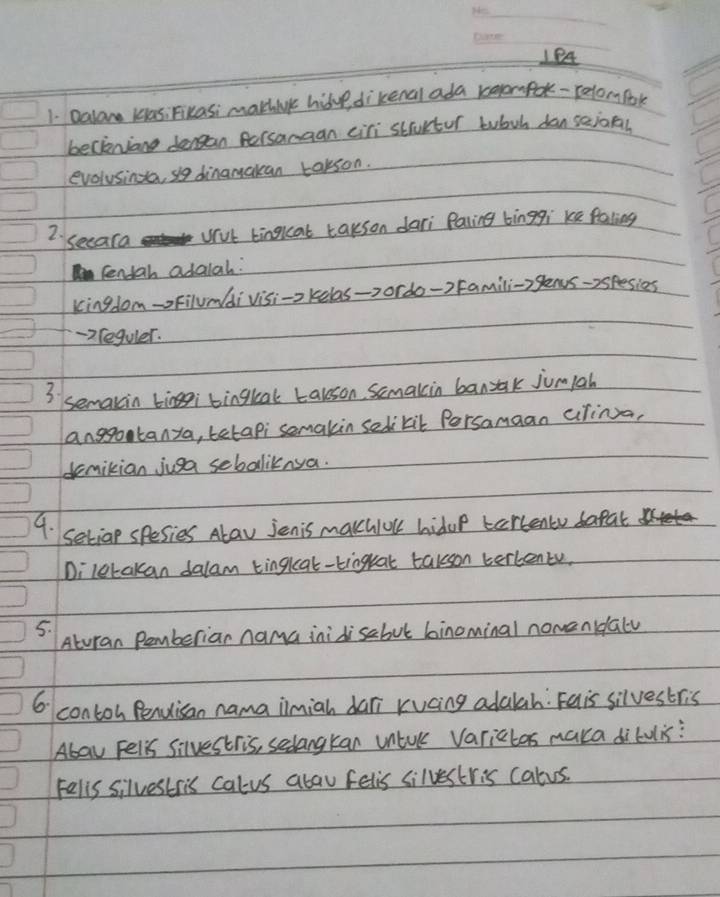 No.
Date:
IPA
1. Dalam klasifikasi makhluk hidup, dikenal ada kelompok-kelompok
berjenjang dengan persamaan ciri struktur tubuh dan sejarah
evolusinya, yg dinamakan takson.
2. secara urut tingkat takson dari paling tinggi ke paling
rendah adalah:
kingdom → Filum/divisi → kelas → ordo → Famili → genus → spesies
→ reguler.
3. semakin tinggi tingkat takson, semakin banyak jumlah
anggotanya, tetapi semakin sedikit persamaan cirinya,
demikian juga sebaliknya.
4. setiap spesies Atau jenis makhluk hidup tertentu dapat
Diletakan dalam tingkat-tingkat takson tertentu.
5. Aturan pemberian nama ini disebut binominal nomenklatu
6. contoh penulisan nama ilmiah dari kucing adalah: Felis silvestris
Atau Felis silvestris, sedangkan untuk varietas maka ditulis:
Felis silvestris catus atau felis silvestris catus.